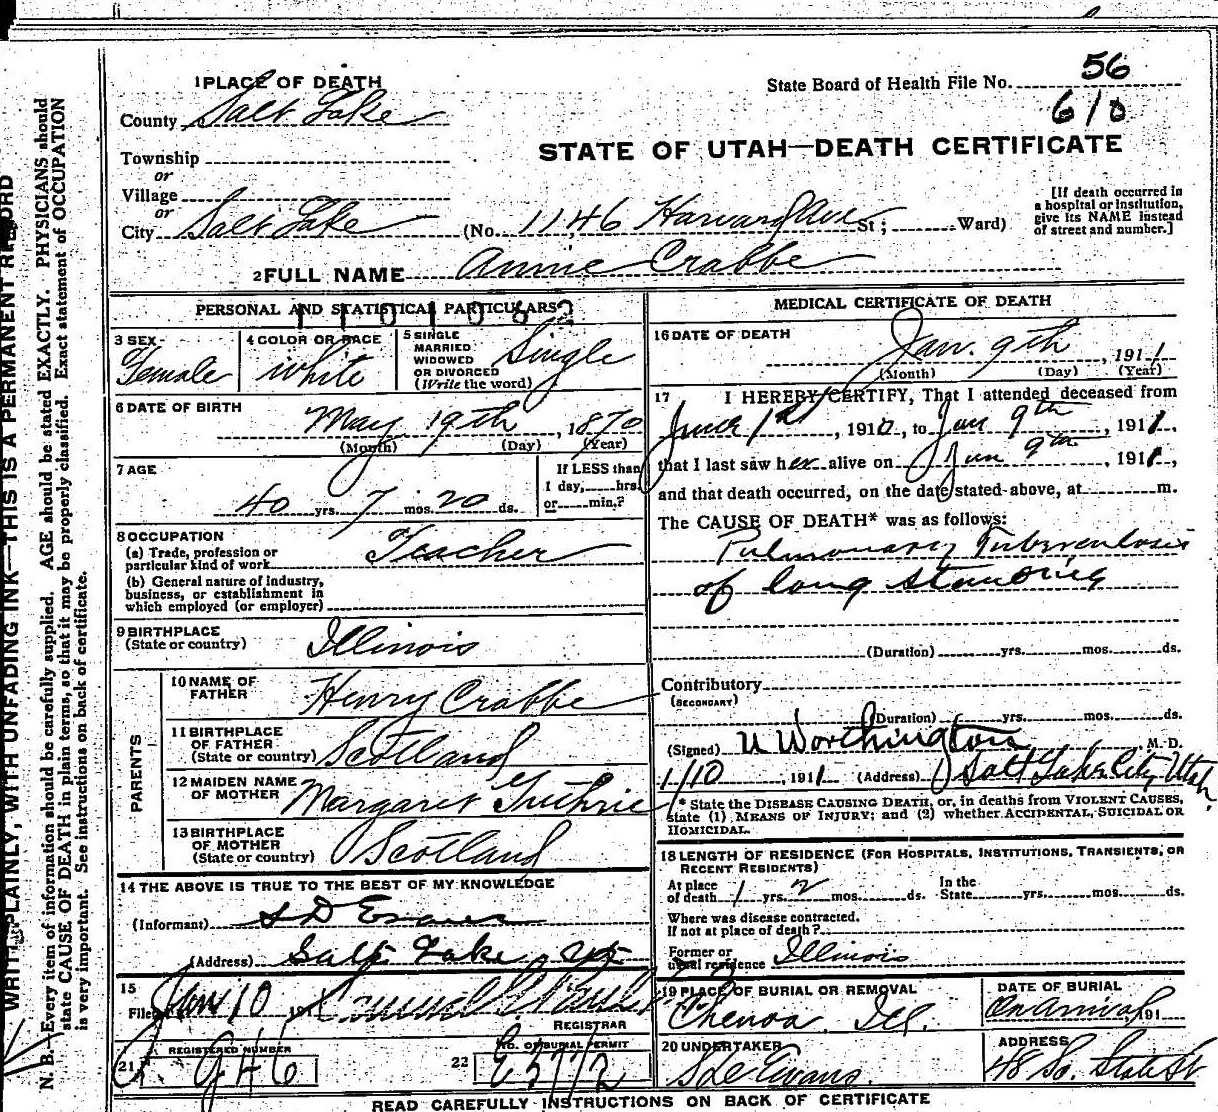 1 PLACE OF DEATH
State Board of Health File No. 56
County Salt Lake
610
STATE OF UTAH—DEATH CERTIFICATE
Township
or
Village
or
City Salt Lake (No. 1146 Harvard Ave St; Ward)
[If death occurred in
a hospital or institution,
give its NAME instead
of street and number.]
2 FULL NAME Annie Crabbe
PERSONAL AND STATISTICAL PARTICULARS
3 SEX
Female
4 COLOR OR RACE
White
5 SINGLE
MARRIED
WIDOWED
OR DIVORCED
(Write the word)
Single
6 DATE OF BIRTH
May 19th, 1870
(Month) (Day) (Year)
7 AGE
40 yrs. 7 mos. 20 ds.
If LESS than
1 day, hrs.
or min.?
8 OCCUPATION
(a) Trade, profession or
particular kind of work Teacher
(b) General nature of industry,
business, or establishment in
which employed (or employer)
9 BIRTHPLACE
(State or country) Illinois
PARENTS
10 NAME OF
FATHER Henry Crabbe
11 BIRTHPLACE
OF FATHER
(State or country) Scotland
12 MAIDEN NAME
OF MOTHER Margaret Guthrie
13 BIRTHPLACE
OF MOTHER
(State or country) Scotland
14 THE ABOVE IS TRUE TO THE BEST OF MY KNOWLEDGE
(Informant) S D Evans
(Address) Salt Lake, Ut
15
Filed Jan 10, 191
REGISTRAR
21 REGISTERED NUMBER
946
22 NO. OF BURIAL PERMIT
E3772
MEDICAL CERTIFICATE OF DEATH
16 DATE OF DEATH
Jan. 9th, 1911
(Month) (Day) (Year)
17 I HEREBY CERTIFY, That I attended deceased from
June 1st, 1910, to Jan 9th, 1911,
that I last saw her alive on Jan 9th, 1911,
and that death occurred, on the date stated above, at m.
The CAUSE OF DEATH* was as follows:
Pulmonary Tuberculosis
of long standing
(Duration) yrs. mos. ds.
Contributory
(SECONDARY)
(Duration) yrs. mos. ds.
(Signed) U Worthington M. D.
1/10, 1911 (Address) Salt Lake City, Utah.
* State the DISEASE CAUSING DEATH, or, in deaths from VIOLENT CAUSES,
state (1) MEANS OF INJURY; and (2) whether ACCIDENTAL, SUICIDAL OR
HOMICIDAL.
18 LENGTH OF RESIDENCE (FOR HOSPITALS, INSTITUTIONS, TRANSIENTS, OR
RECENT RESIDENTS)
At place
of death 1 yrs. 2 mos. ds. In the
State yrs. mos. ds.
Where was disease contracted,
If not at place of death?
Former or
usual residence Illinois
19 PLACE OF BURIAL OR REMOVAL
Chenoa, Ill.
DATE OF BURIAL
On Arrival, 191
20 UNDERTAKER
S D Evans.
ADDRESS
48 So. State St
READ CAREFULLY INSTRUCTIONS ON BACK OF CERTIFICATE
WRITE PLAINLY, WITH UNFADING INK—THIS IS A PERMANENT RECORD
N. B.—Every item of information should be carefully supplied. AGE should be stated EXACTLY. PHYSICIANS should
state CAUSE OF DEATH in plain terms, so that it may be properly classified. Exact statement of OCCUPATION
is very important. See instructions on back of certificate.